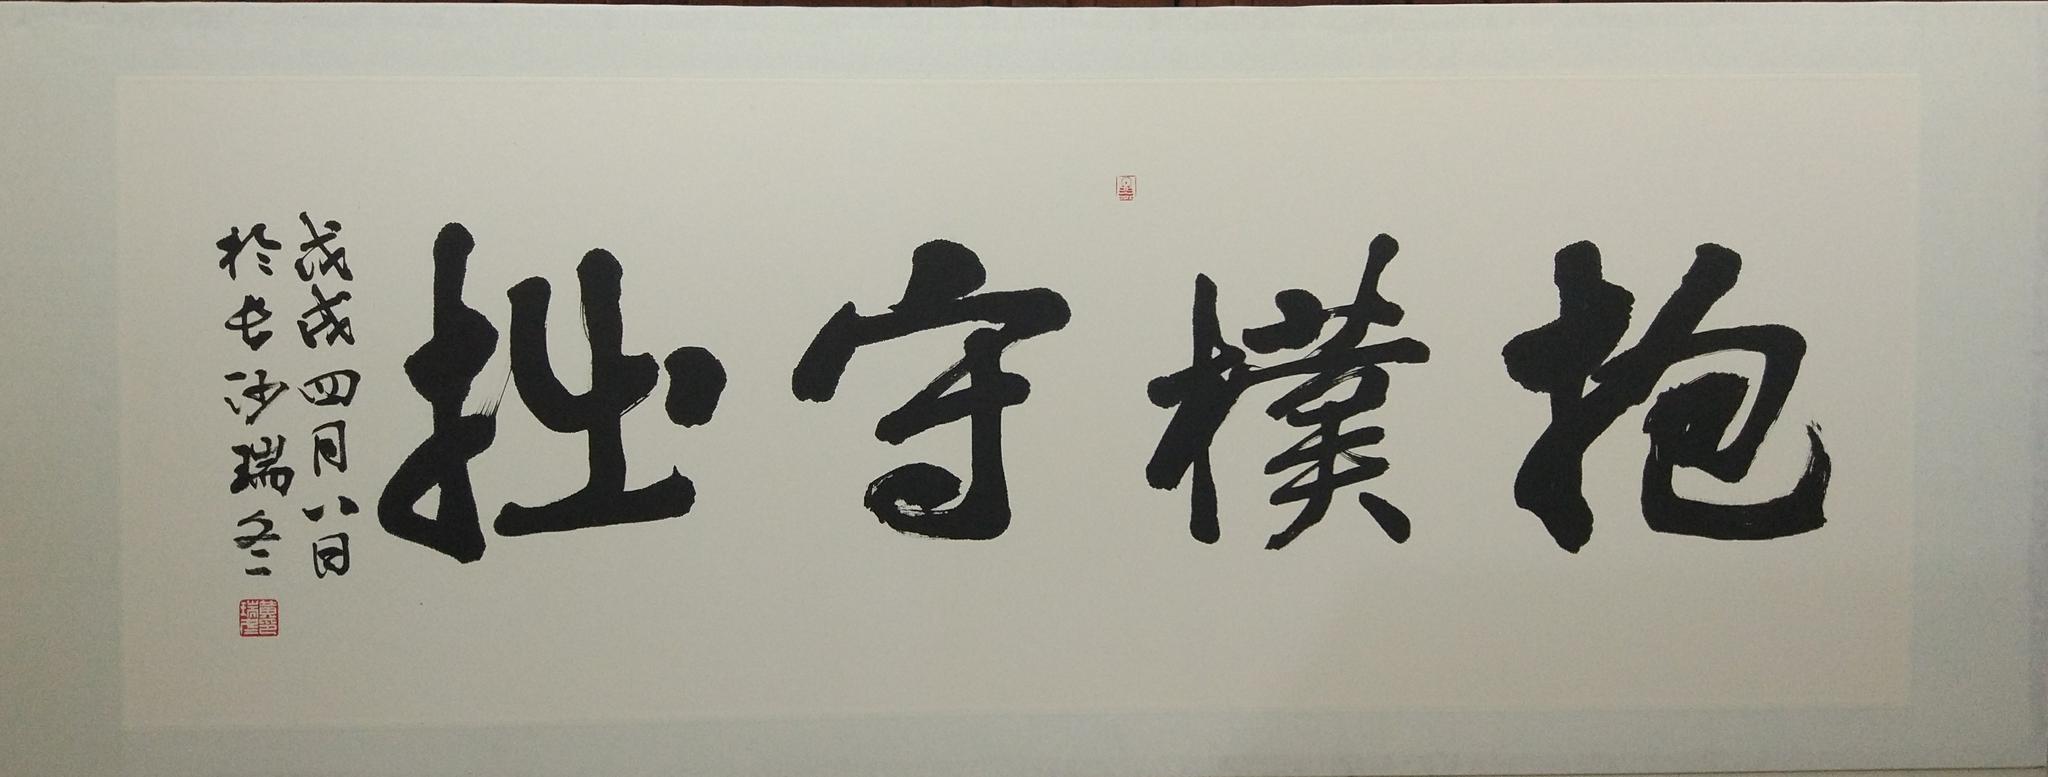 抱樸守拙
戊戌四月八日
於長沙瑞冬